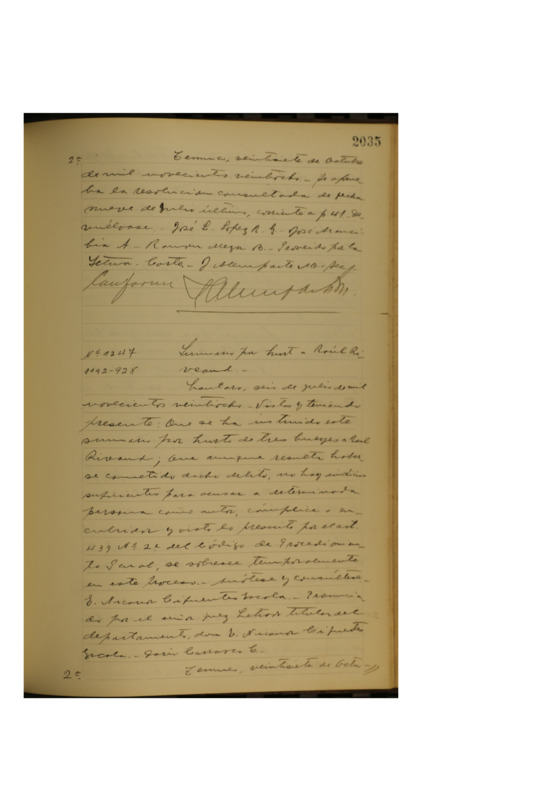 2035
2ª Temuco, veintisiete de Octubre
de mil novecientos veintiocho.- Se aprue-
ba la resolución consultada de fecha
nueve de Julio último, corriente a f 41. De-
vuélvase. José L. Lopez R. J. Jose
A. Ramon Meza B. Proveido por la
Iltma. Corte. J Alemparte
Conforme
Nº 1247 Sumario por hurt a Raúl Ri-
1192-928 veaud.-
Lautaro, seis de Julio de mil
novecientos veintiocho.- Vistos y teniendo
presente: Que se ha instruido este
sumario por hurto de tres bueyes a Raul
Riveaud; Que aunque resulta haber-
se cometido dicho delito, no hay indicios
suficientes para acusar a determinada
persona como autor, cómplice o en-
cubridor y visto lo prescrito por el art.
439 Nº 2º del Código de Procedimien-
to Penal, se sobresee temporalmente
en este proceso.- Anótese y consúltese.-
E. Nicanor Cifuentes Escola.- Pronuncia-
do por el señor juez Letrado titular del
departamento, don E. Nicanor Cifuentes
Escola.-
2ª Temuco, veintisiete de Octu-